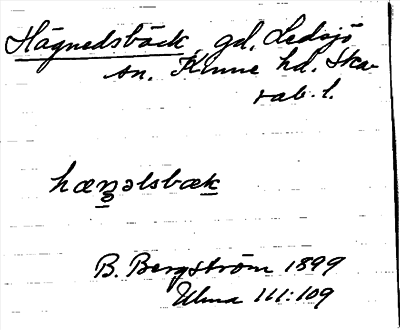 Hägnedsbäck, gd, Ledsjö
sn. Kinne hd. Ska-
rab. l.
hæņəlsbæk
B. Bergström 1899
Ulma 111:109